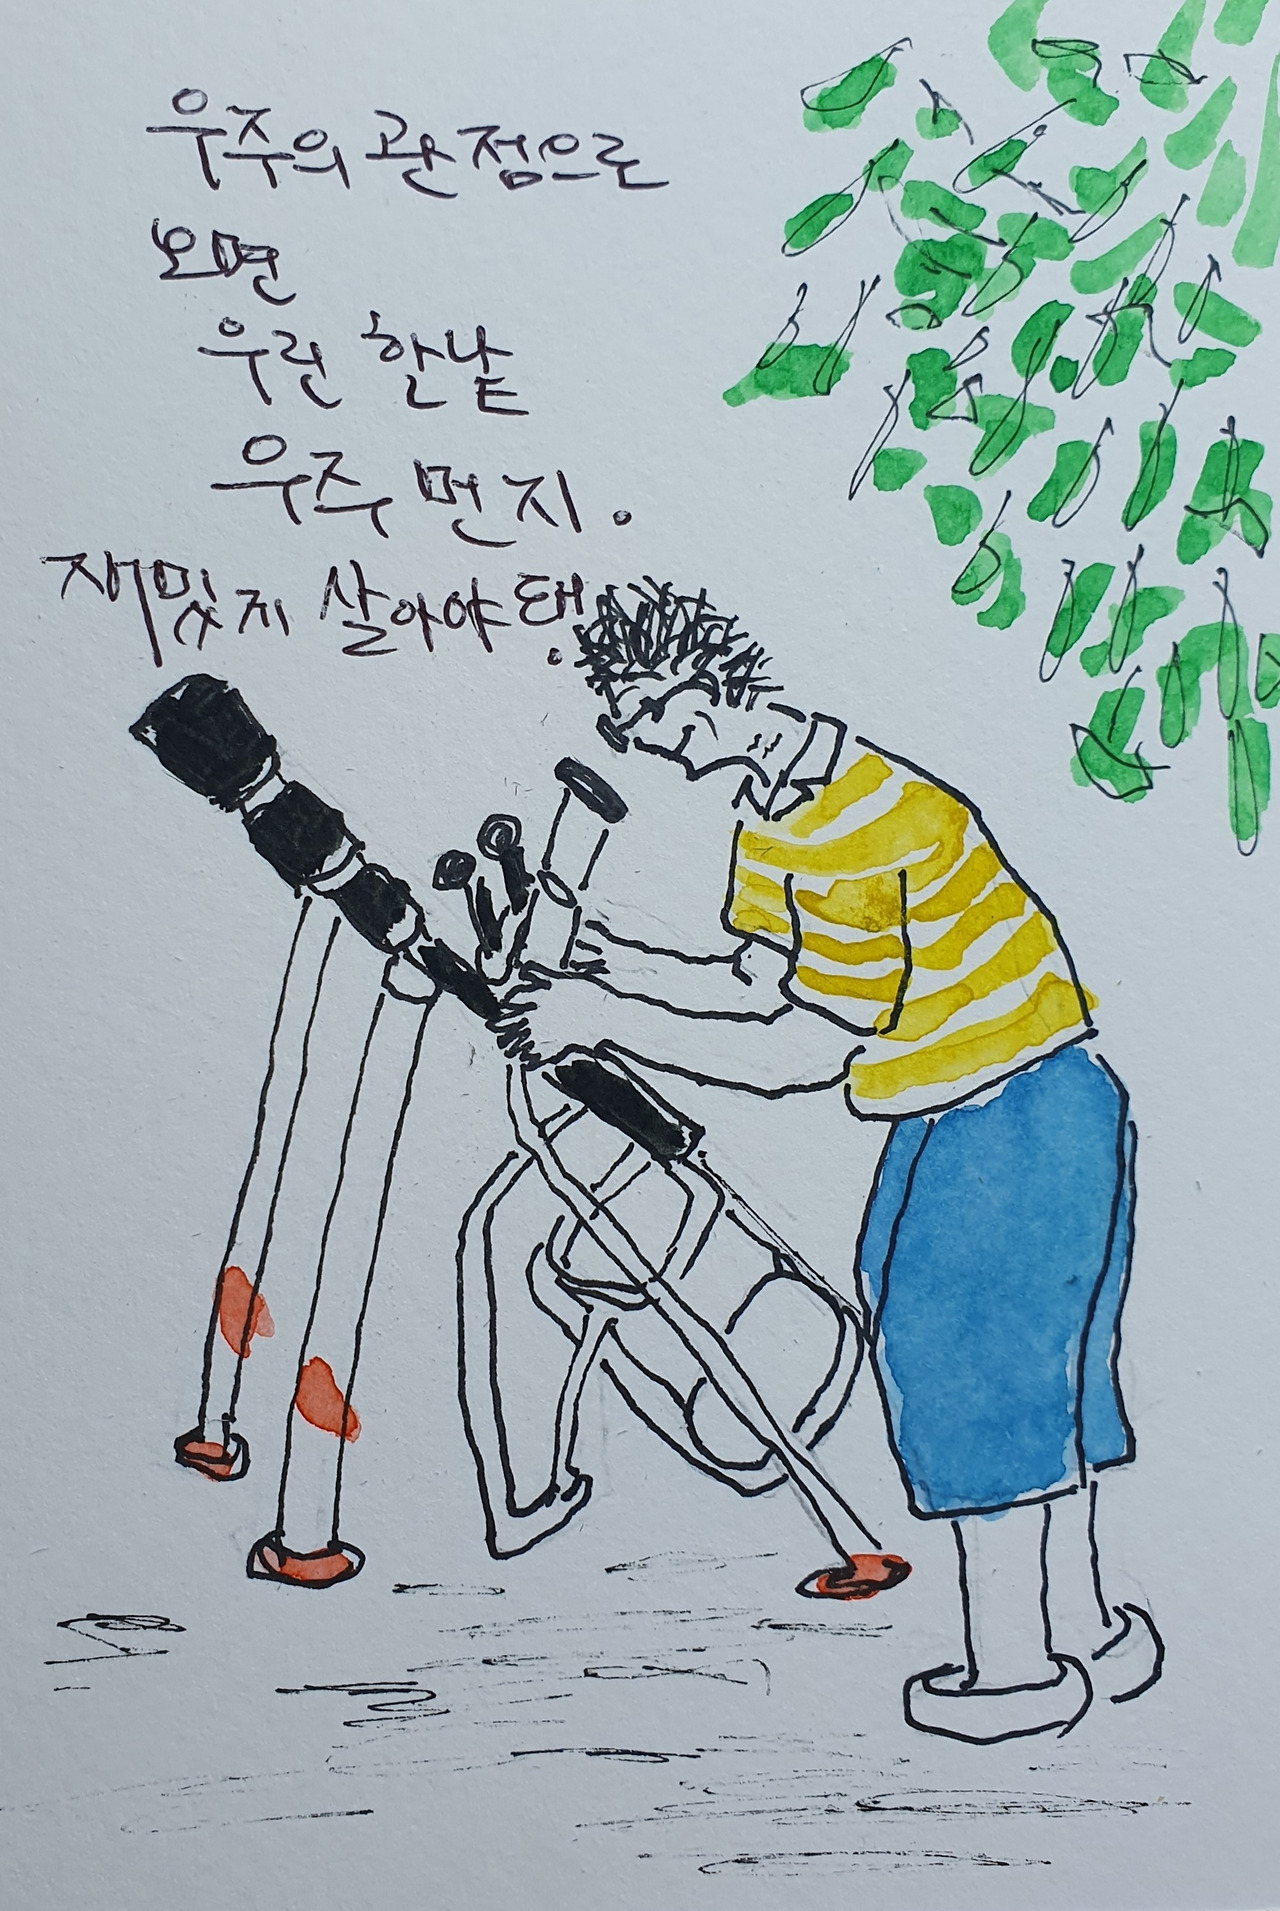 우주의 관점으로
오면
우린 한낱
우주 먼지.
재밌게 살아야 돼.